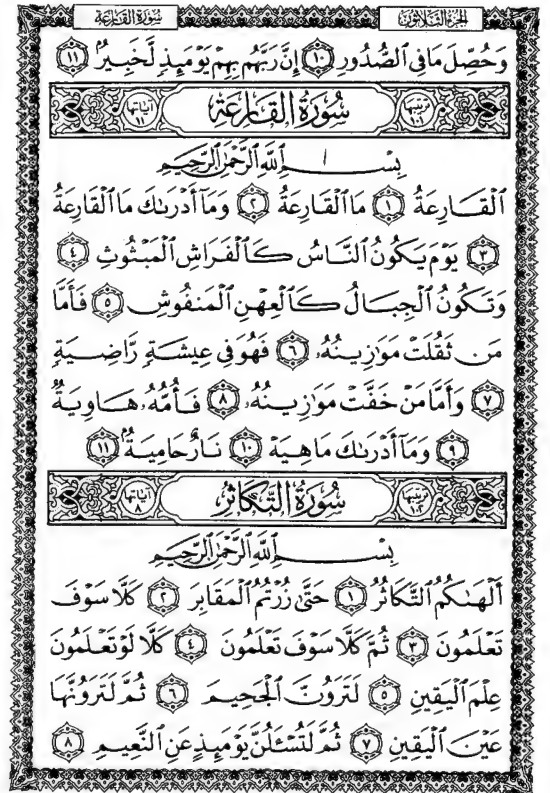 سورة القارعة الجزء الثلاثون
وَحُصِّلَ مَا فِي ٱلصُّدُورِ ١٠ إِنَّ رَبَّهُم بِهِمْ يَوْمَئِذٍ لَّخَبِيرٌۢ ١١
ترتيبها ١٠١ سُورَةُ القَارِعَةِ آياتها ١١
بِسْمِ ٱللَّهِ ٱلرَّحْمَٰنِ ٱلرَّحِيمِ
ٱلْقَارِعَةُ ١ مَا ٱلْقَارِعَةُ ٢ وَمَآ أَدْرَىٰكَ مَا ٱلْقَارِعَةُ
٣ يَوْمَ يَكُونُ ٱلنَّاسُ كَٱلْفَرَاشِ ٱلْمَبْثُوثِ ٤
وَتَكُونُ ٱلْجِبَالُ كَٱلْعِهْنِ ٱلْمَنفُوشِ ٥ فَأَمَّا
مَن ثَقُلَتْ مَوَٰزِينُهُۥ ٦ فَهُوَ فِي عِيشَةٍ رَّاضِيَةٍ
٧ وَأَمَّا مَنْ خَفَّتْ مَوَٰزِينُهُۥ ٨ فَأُمُّهُۥ هَاوِيَةٌ
٩ وَمَآ أَدْرَىٰكَ مَا هِيَهْ ١٠ نَارٌ حَامِيَةٌۢ ١١
ترتيبها ١٠٢ سُورَةُ التَّكَاثُرِ آياتها ٨
بِسْمِ ٱللَّهِ ٱلرَّحْمَٰنِ ٱلرَّحِيمِ
أَلْهَىٰكُمُ ٱلتَّكَاثُرُ ١ حَتَّىٰ زُرْتُمُ ٱلْمَقَابِرَ ٢ كَلَّا سَوْفَ
تَعْلَمُونَ ٣ ثُمَّ كَلَّا سَوْفَ تَعْلَمُونَ ٤ كَلَّا لَوْ تَعْلَمُونَ
عِلْمَ ٱلْيَقِينِ ٥ لَتَرَوُنَّ ٱلْجَحِيمَ ٦ ثُمَّ لَتَرَوُنَّهَا
عَيْنَ ٱلْيَقِينِ ٧ ثُمَّ لَتُسْـَٔلُنَّ يَوْمَئِذٍ عَنِ ٱلنَّعِيمِ ٨